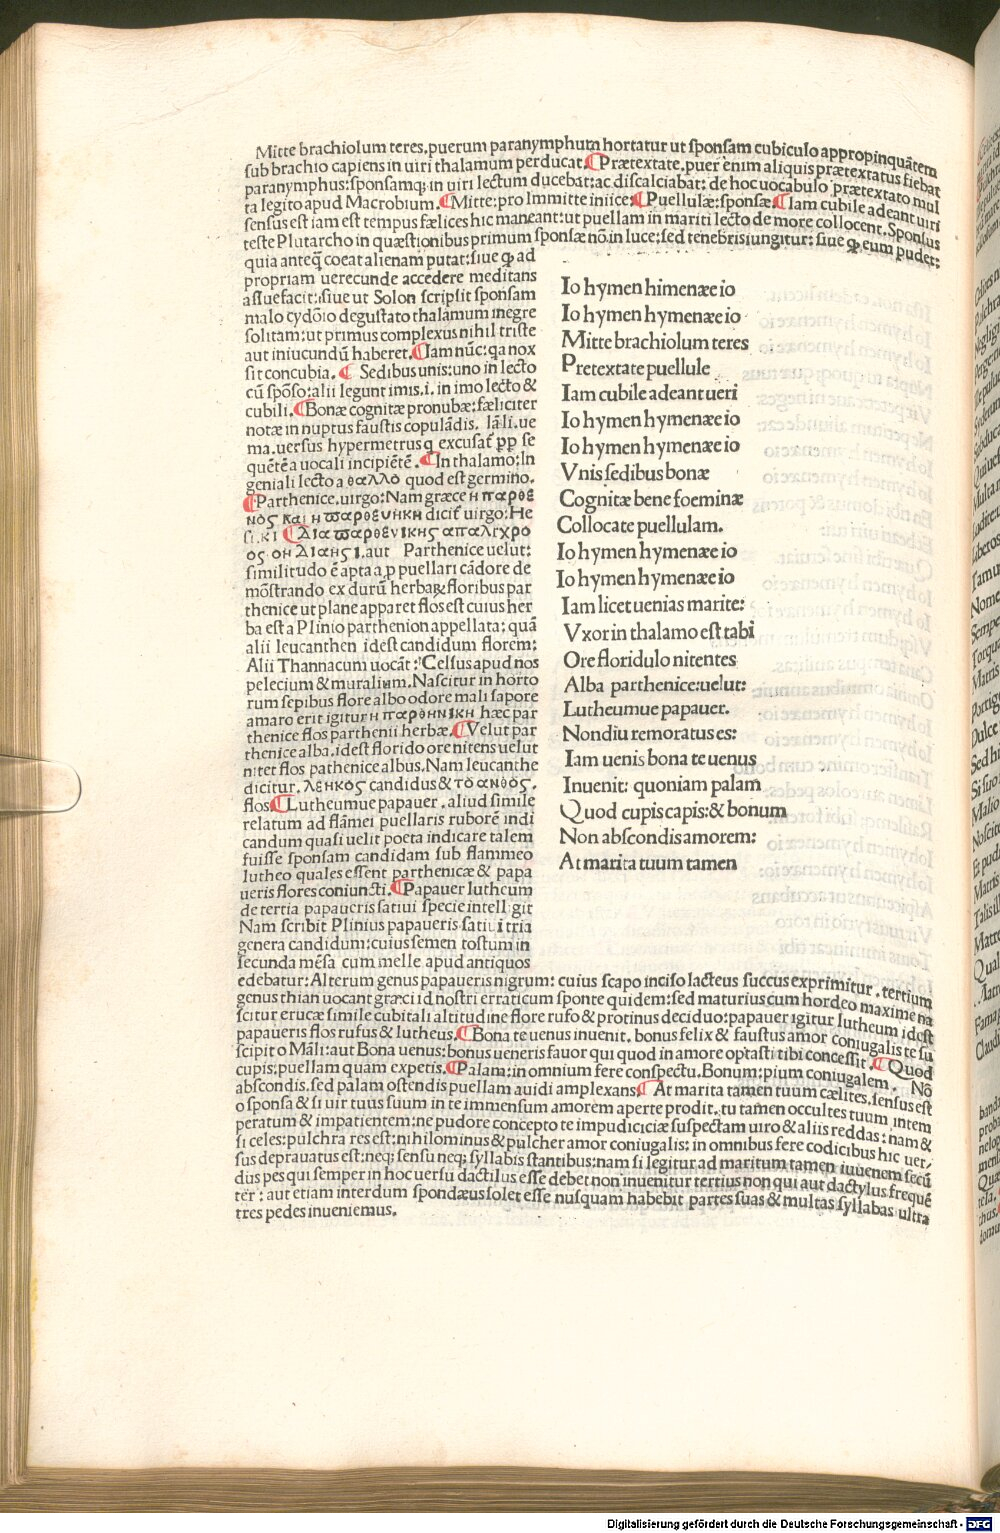 Mitte brachiolum teres.puerum paranymphum hortatur ut sponsam cubiculo appropinquātem
sub brachio capiens in uiri thalamum perducat.¶Prætextate.puer enim aliquis prætextatus fiebat
paranymphus:sponsamq; in uiri lectum ducebat:ac discalciabat: de hoc uocabulo prætextato mul
ta legito apud Macrobium.¶Mitte:pro Immitte iniice:¶Puellulæ:sponsæ:¶Iam cubile adeant uiri
sensus est iam est tempus fælices hic maneant:ut puellam in mariti lecto de more collocent.Sponsus
teste Plutarcho in quæstionibus primum sponsæ nō.in luce:sed tenebris iungitur: siue ꝙ eum pudet:
quia anteq̄ coeat alienam putat:siue ꝙ ad
propriam uerecunde accedere meditans
assuefacit:siue ut Solon scripsit sponsam
malo cydōio degustato thalamum inegre
solitam:ut primus complexus nihil triste
aut iniucundū haberet.¶Iam nūc:qa nox
sit concubia.¶ Sedibus unis:uno in lecto
cū spōso:alii legunt imis.i. in imo lecto &
cubili.¶Bonæ cognitæ pronubæ:fæliciter
notæ in nuptus faustis copulādis. Iā li.ue
ma.uersus hypermetrus q excusat̄ p̱p se
quētē a uocali incipiētē.¶In thalamo:In
geniali lecto a θαλλο quod est germino.
¶Parthenice.uirgo:Nam græce η παρθε
νος και η παρθενικη dicit̄ uirgo:He
si.κι ¶Δια παρθενικης απαλιχρο
ος ον Διαησι.aut Parthenice uelut:
similitudo ē apta a p puellari cādore de
mōstrando ex durū herba&floribus par
thenice ut plane apparet flos est cuius her
ba est a Plinio parthenion appellata: quā
alii leucanthen idest candidum florem:
Alii Thannacum uocāt:Celsus apud nos
pelecium & muralium.Nascitur in horto
rum sepibus flore albo odore mali sapore
amaro erit igitur η παρθηνικη hæc par
thenice flos parthenii herbæ.¶Velut par
thenice alba.idest florido ore nitens uelut
nitet flos pathenice albus.Nam leucanthe
dicitur. λεηκος candidus & το ανθος.
flos¶Lutheumue papauer.aliud simile
relatum ad flāmei puellaris ruborē indi
candum quasi uelit poeta indicare talem
fuisse sponsam candidam sub flammeo
lutheo quales essent parthenicæ & papa
ueris flores coniuncti.¶Papauer lutheum
de tertia papaueris satiui specie intell git
Nam scribit Plinius papaueris satiui tria
genera candidum:cuius semen tostum in
secunda mēsa cum melle apud antiquos
Io hymen himenæe io
Io hymen hymenæe io
Mitte brachiolum teres
Pretextate puellule
Iam cubile adeant ueri
Io hymen hymenæe io
Io hymen hymenæe io
Vnis sedibus bonæ
Cognitæ bene foeminæ
Collocate puellulam.
Io hymen hymenæe io
Io hymen hymenæe io
Iam licet uenias marite:
Vxor in thalamo est tabi
Ore floridulo nitentes
Alba parthenice:uelut:
Lutheumue papauer.
Non diu remoratus es:
Iam uenis bona te uenus
Inuenit: quoniam palam
Quod cupis capis:& bonum
Non abscondis amorem:
At marita tuum tamen
edebatur:Alterum genus papaueris nigrum: cuius scapo inciso lacteus succus exprimitur.tertium
genus thian uocant græci id nostri erraticum sponte quidem:sed maturius cum hordeo maxime na
scitur erucæ simile cubitali altitudine flore rufo & protinus deciduo:papauer igitur lutheum idest
papaueris flos rufus & lutheus.¶Bona te uenus inuenit. bonus felix & faustus amor coniugalis te su
scipit o Māli:aut Bona uenus:bonus ueneris fauor qui quod in amore optasti tibi concessit.¶Quod
cupis:puellam quam expetis.¶Palam:in omnium fere conspectu.Bonum:pium coniugalem. Nō
abscondis.sed palam ostendis puellam auidi amplexans¶ At marita tamen tuum cælites.sensus est
o sponsa & si uir tuus suum in te immensum amorem aperte prodit.tu tamen occultes tuum intem
peratum & impatientem:ne pudore concepto te impudiciciæ suspectam uiro & aliis reddas:nam &
si celes:pulchra res est:nihilominus & pulcher amor coniugalis:in omnibus fere codicibus hic uer,
sus deprauatus est:neq; sensu neq; syllabis stantibus:nam si legitur ad maritum tamen iuuenem secū
dus pes qui semper in hoc uersu dactilus esse debet non inuenitur tertius non qui aut dactylus frequē
ter: aut etiam interdum spondæus solet esse nusquam habebit partes suas & multas syllabas ultra
tres pedes inueniemus.
Digitalisierung gefördert durch die Deutsche Forschungsgemeinschaft - DFG